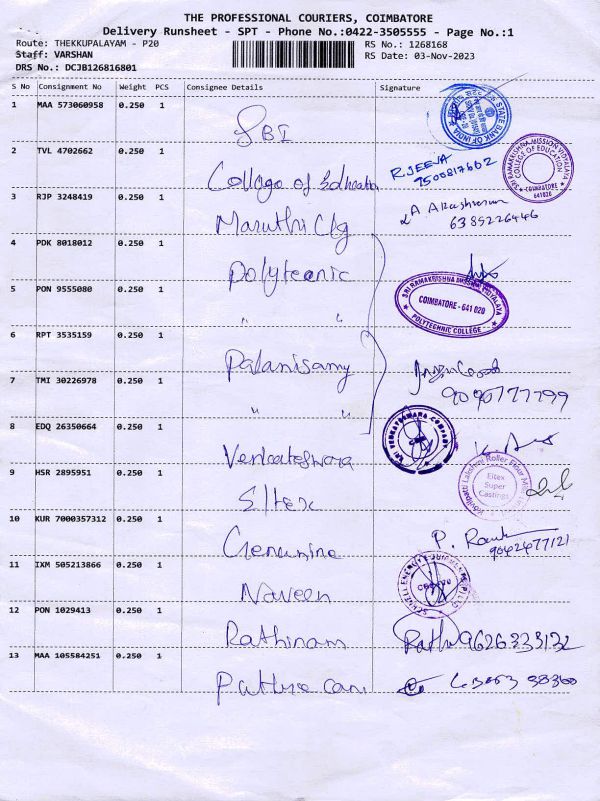 THE PROFESSIONAL COURIERS, COIMBATORE
Delivery Runsheet - SPT - Phone No.:0422-3505555 - Page No.:1
Route: THEKKUPALAYAM - P20
RS No.: 1268168
Staff: VARSHAN
RS Date: 03-Nov-2023
DRS No.: DCJB126816801
S No Consignment No Weight PCS Consignee Details Signature
1 MAA 573060958 0.250 1 SBI
STATE BANK OF INDIA
2 TVL 4702662 0.250 1 College of Education R.JEENA
9500817602
SRI RAMAKRISHNA MISSION VIDYALAYA
COLLEGE OF EDUCATION
COIMBATORE
641020
3 RJP 3248419 0.250 1 Maruthi Clg
6385226446
4 PDK 8018012 0.250 1 Polytecnic
5 PON 9555080 0.250 1 " "
SRI RAMAKRISHNA MISSION VIDYALAYA
COIMBATORE - 641 020
POLYTECHNIC COLLEGE
6 RPT 3535159 0.250 1 Palanisamy
7 TMI 30226978 0.250 1 " "
8 EDQ 26350664 0.250 1 Venkateswara
SRI VENKATESWARA COMPANY
9 HSR 2895951 0.250 1 Eltex
Eltex
Super
Castings
10 KUR 7000357312 0.250 1
9042477121
11 IXM 505213866 0.250 1 Naveen
12 PON 1029413 0.250 1 Rathinam
13 MAA 105584251 0.250 1